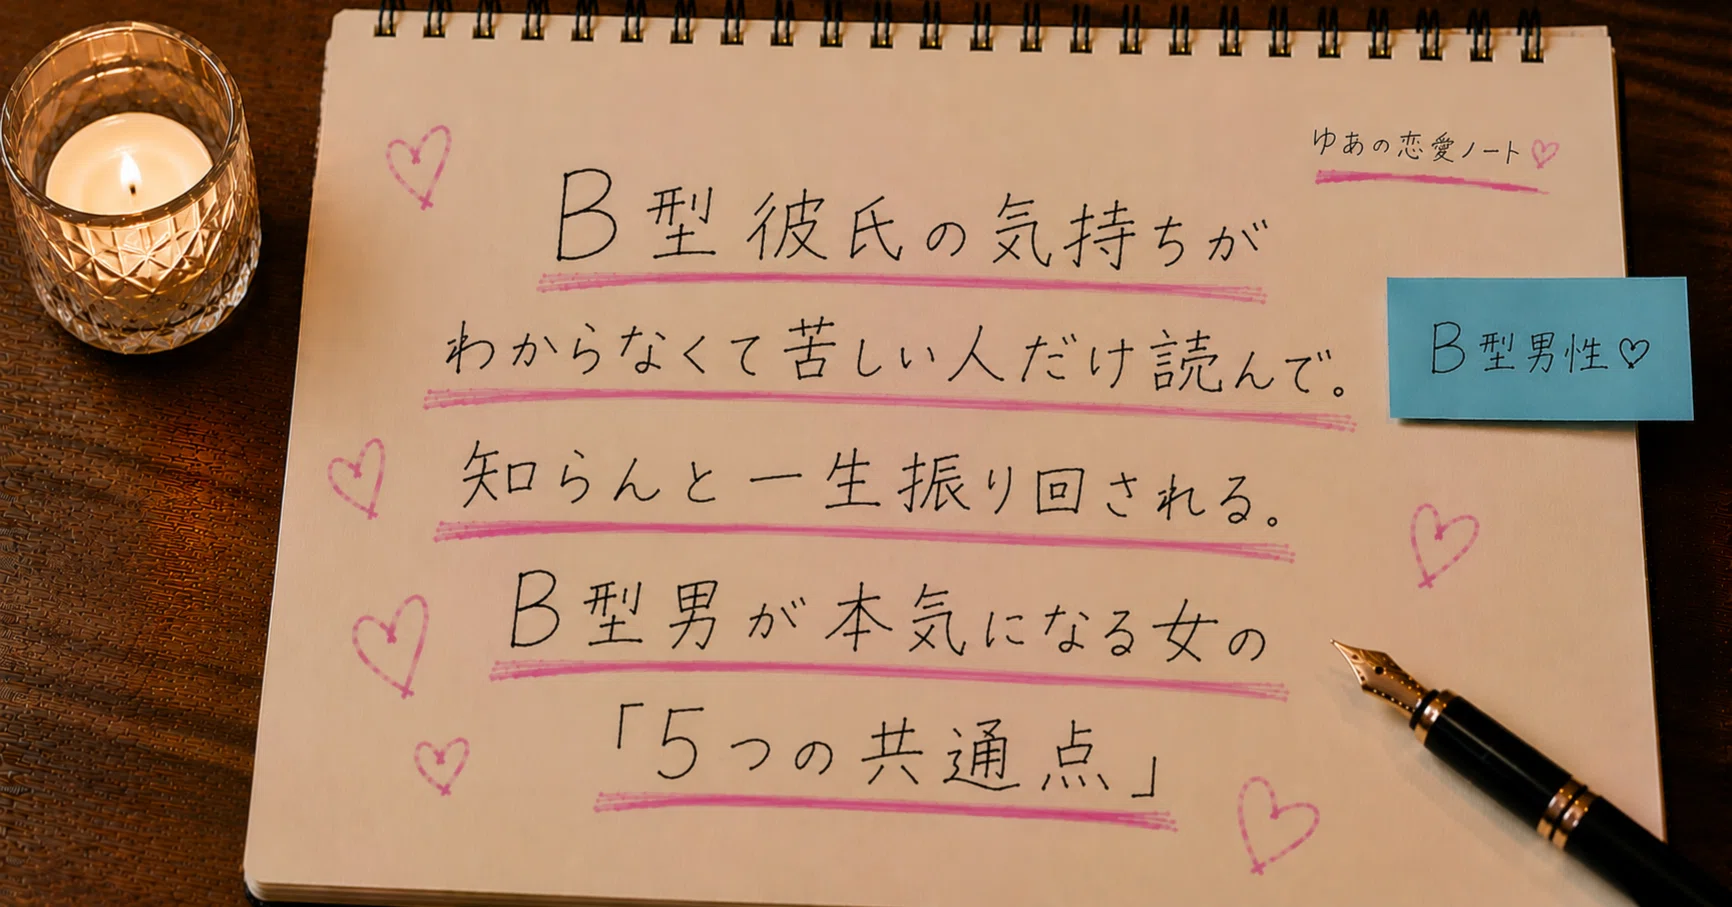 ゆあの恋愛ノート♡
B型彼氏の気持ちが
わからなくて苦しい人だけ読んで。
B型男性♡
知らんと一生振り回される。
B型男が本気になる女の
「5つの共通点」